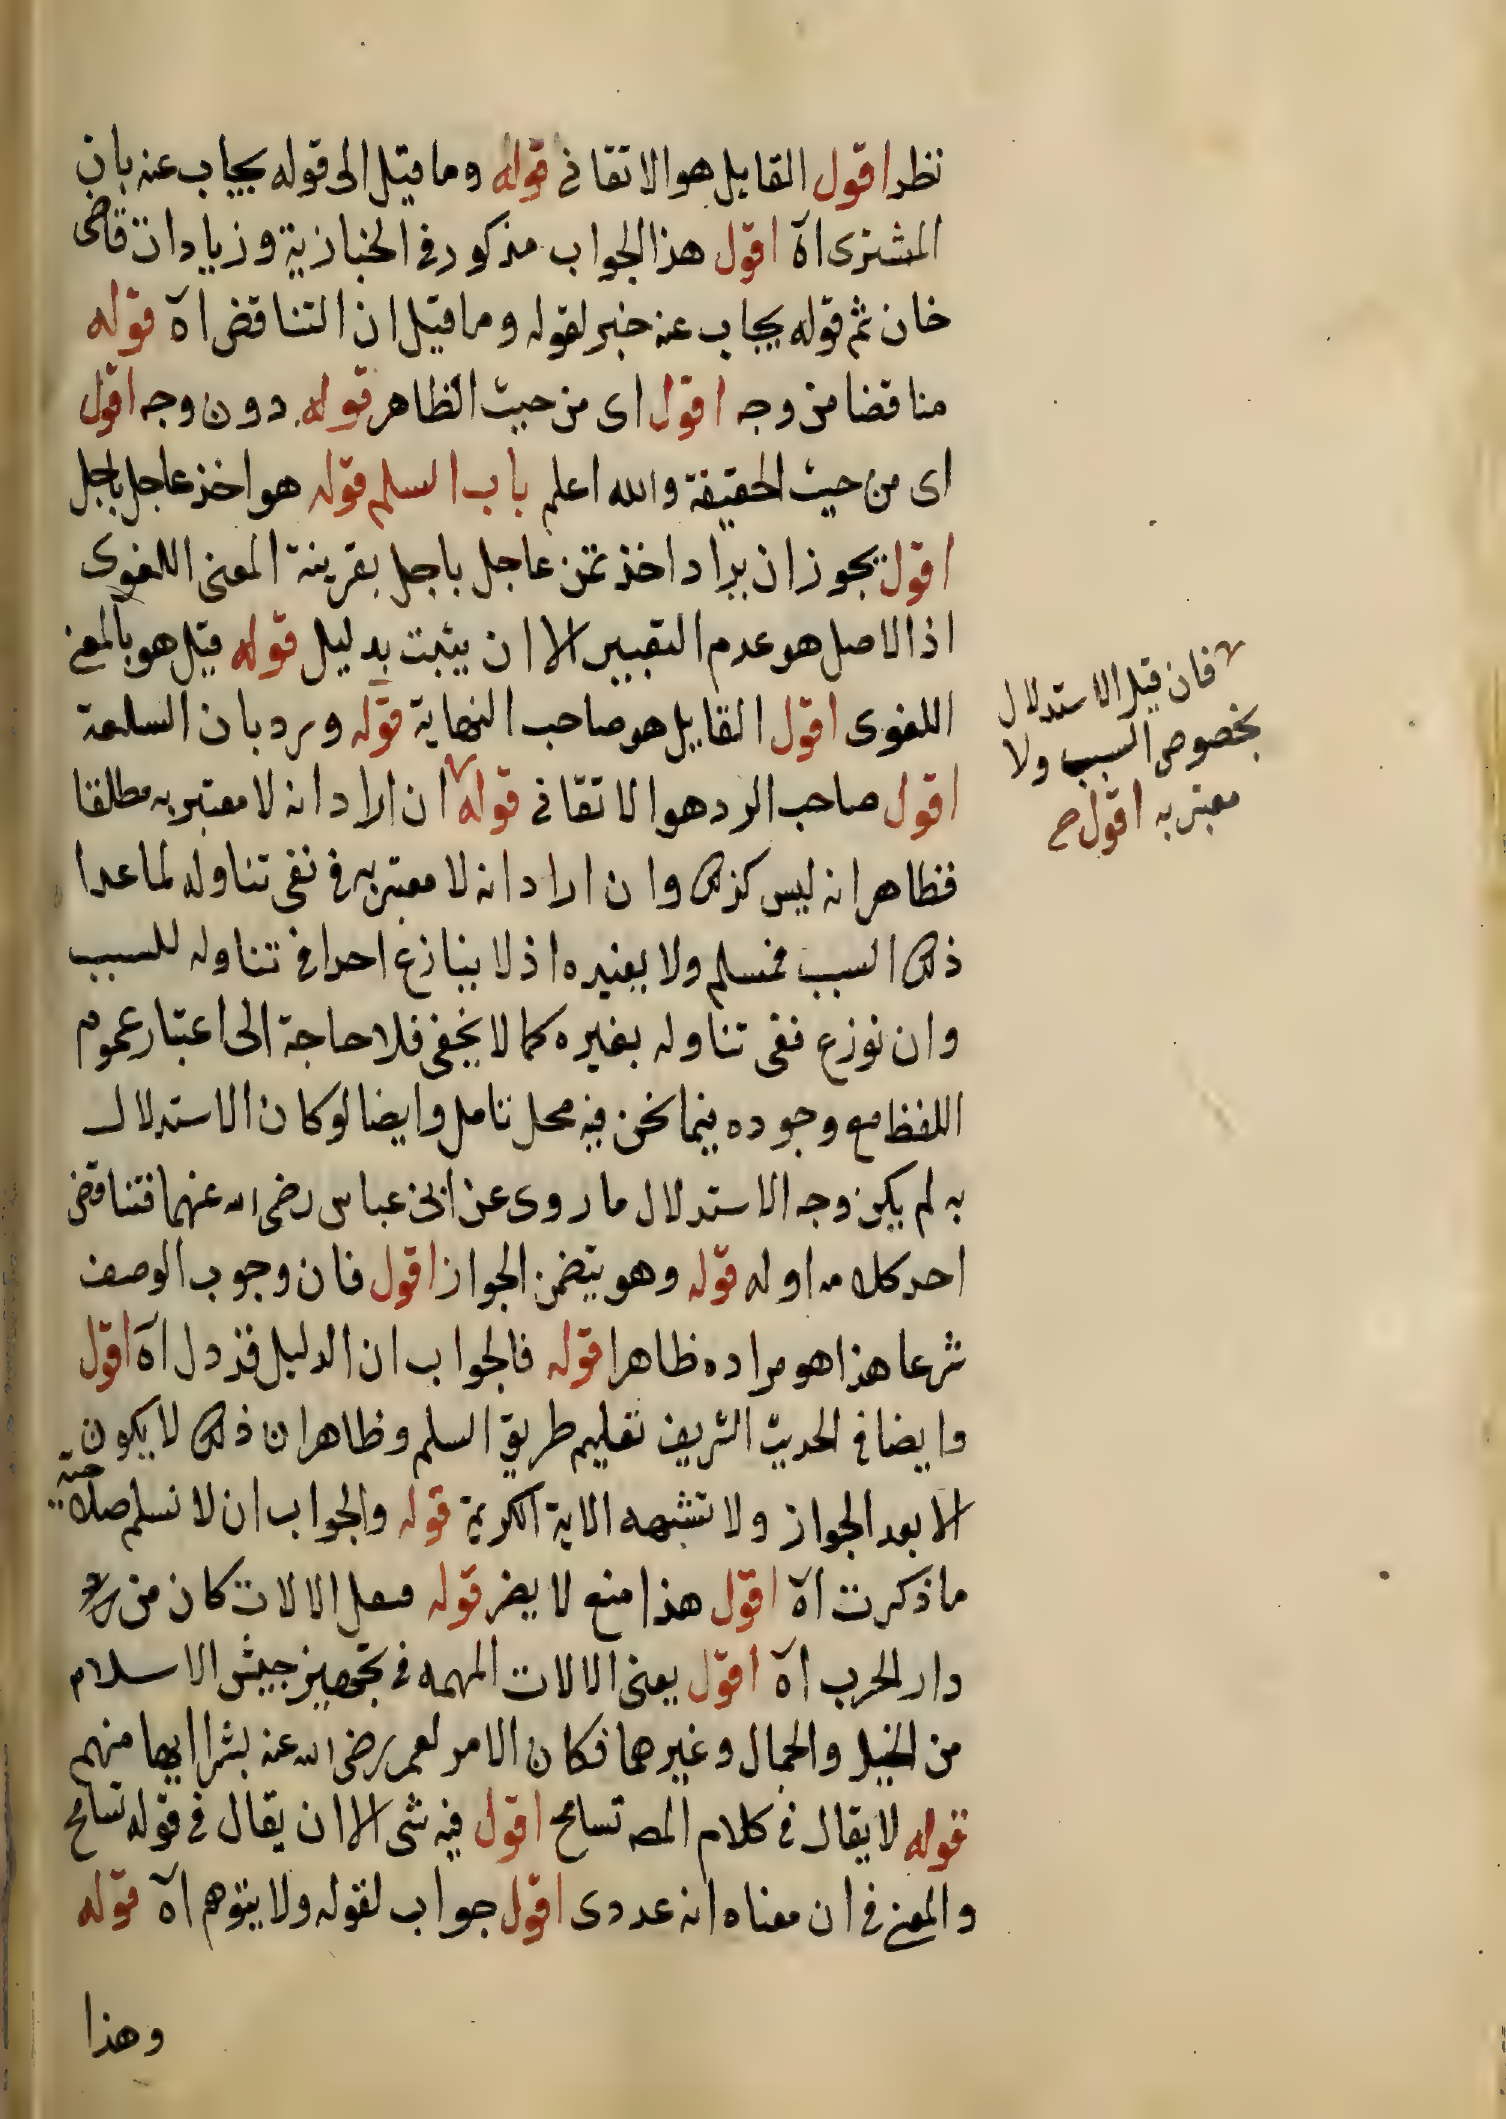 نظر اقول القايل هو الاتقانى قوله وما قيل الى قوله يجاب عنه بان
المشترى اه اقول هذا الجواب مذكور فى الخبازية وزيادات قاضى
خان ثم قوله يجاب عنه خبر لقوله وما قيل ان التناقض اه قوله
مناقضا من وجه اقول اى من حيث الظاهر قوله دون وجه اقول
اى من حيث الحقيقة والله اعلم باب السلم قوله هو اخذ عاجل باجل
اقول يجوز ان يراد اخذ ثمن عاجل باجل بقرينة المعنى اللغوى
اذ الاصل هو عدم التغيير الا ان يثبت بدليل قوله قيل هو بالمعنى
اللغوى اقول القايل هو صاحب النهاية قوله ورد بان السلعة
اقول صاحب الرد هو الاتقانى قوله ان اراد انه لا معتبر به مطلقا
فظاهر انه ليس كذلك وان اراد انه لا معتبر به فى نفى تناوله لما عدا
ذلك السبب فمسلم ولا يفيده اذ لا ينازع احد فى تناوله للسبب
وان نوزع ففى تناوله بغيره كما لا يخفى فلا حاجة الى اعتبار عموم
اللفظ مع وجوده فيما نحن فيه محل تامل وايضا لو كان الاستدلال
به لم يكن وجه الاستدلال ما روى عن ابن عباس رضى الله عنهما فتناقض
احد كلامه اوله قوله وهو يتضمن الجواز اقول فان وجوب الوصف
شرعا هذا هو مراده ظاهرا قوله فالجواب ان الدليل قد دل اه اقول
وايضا فى الحديث الشريف تعليم طريق السلم وظاهر ان ذلك لا يكون
الا بعد الجواز ولا تشبهه الاية الكريمة قوله والجواب ان لا نسلم صلاحية
ما ذكرت اه اقول هذا منع لا يضر قوله فعل الالات كان من
دار الحرب اه اقول يعنى الالات المهمه فى تجهيز جيش الاسلام
من الخيل والجمال وغيرهما فكان الامر لعمر رضى الله عنه بشرايها منهم
قوله لا يقال فى كلام المصه تسامح اقول فيه شى الا ان يقال فى قوله تسامح
والمعنى فى ان معناه انه عددى اقول جواب لقوله ولا يتوهم اه قوله
وهذا
فان قيل الاستدلال
بخصوص السبب ولا
معتبر به اقول صح